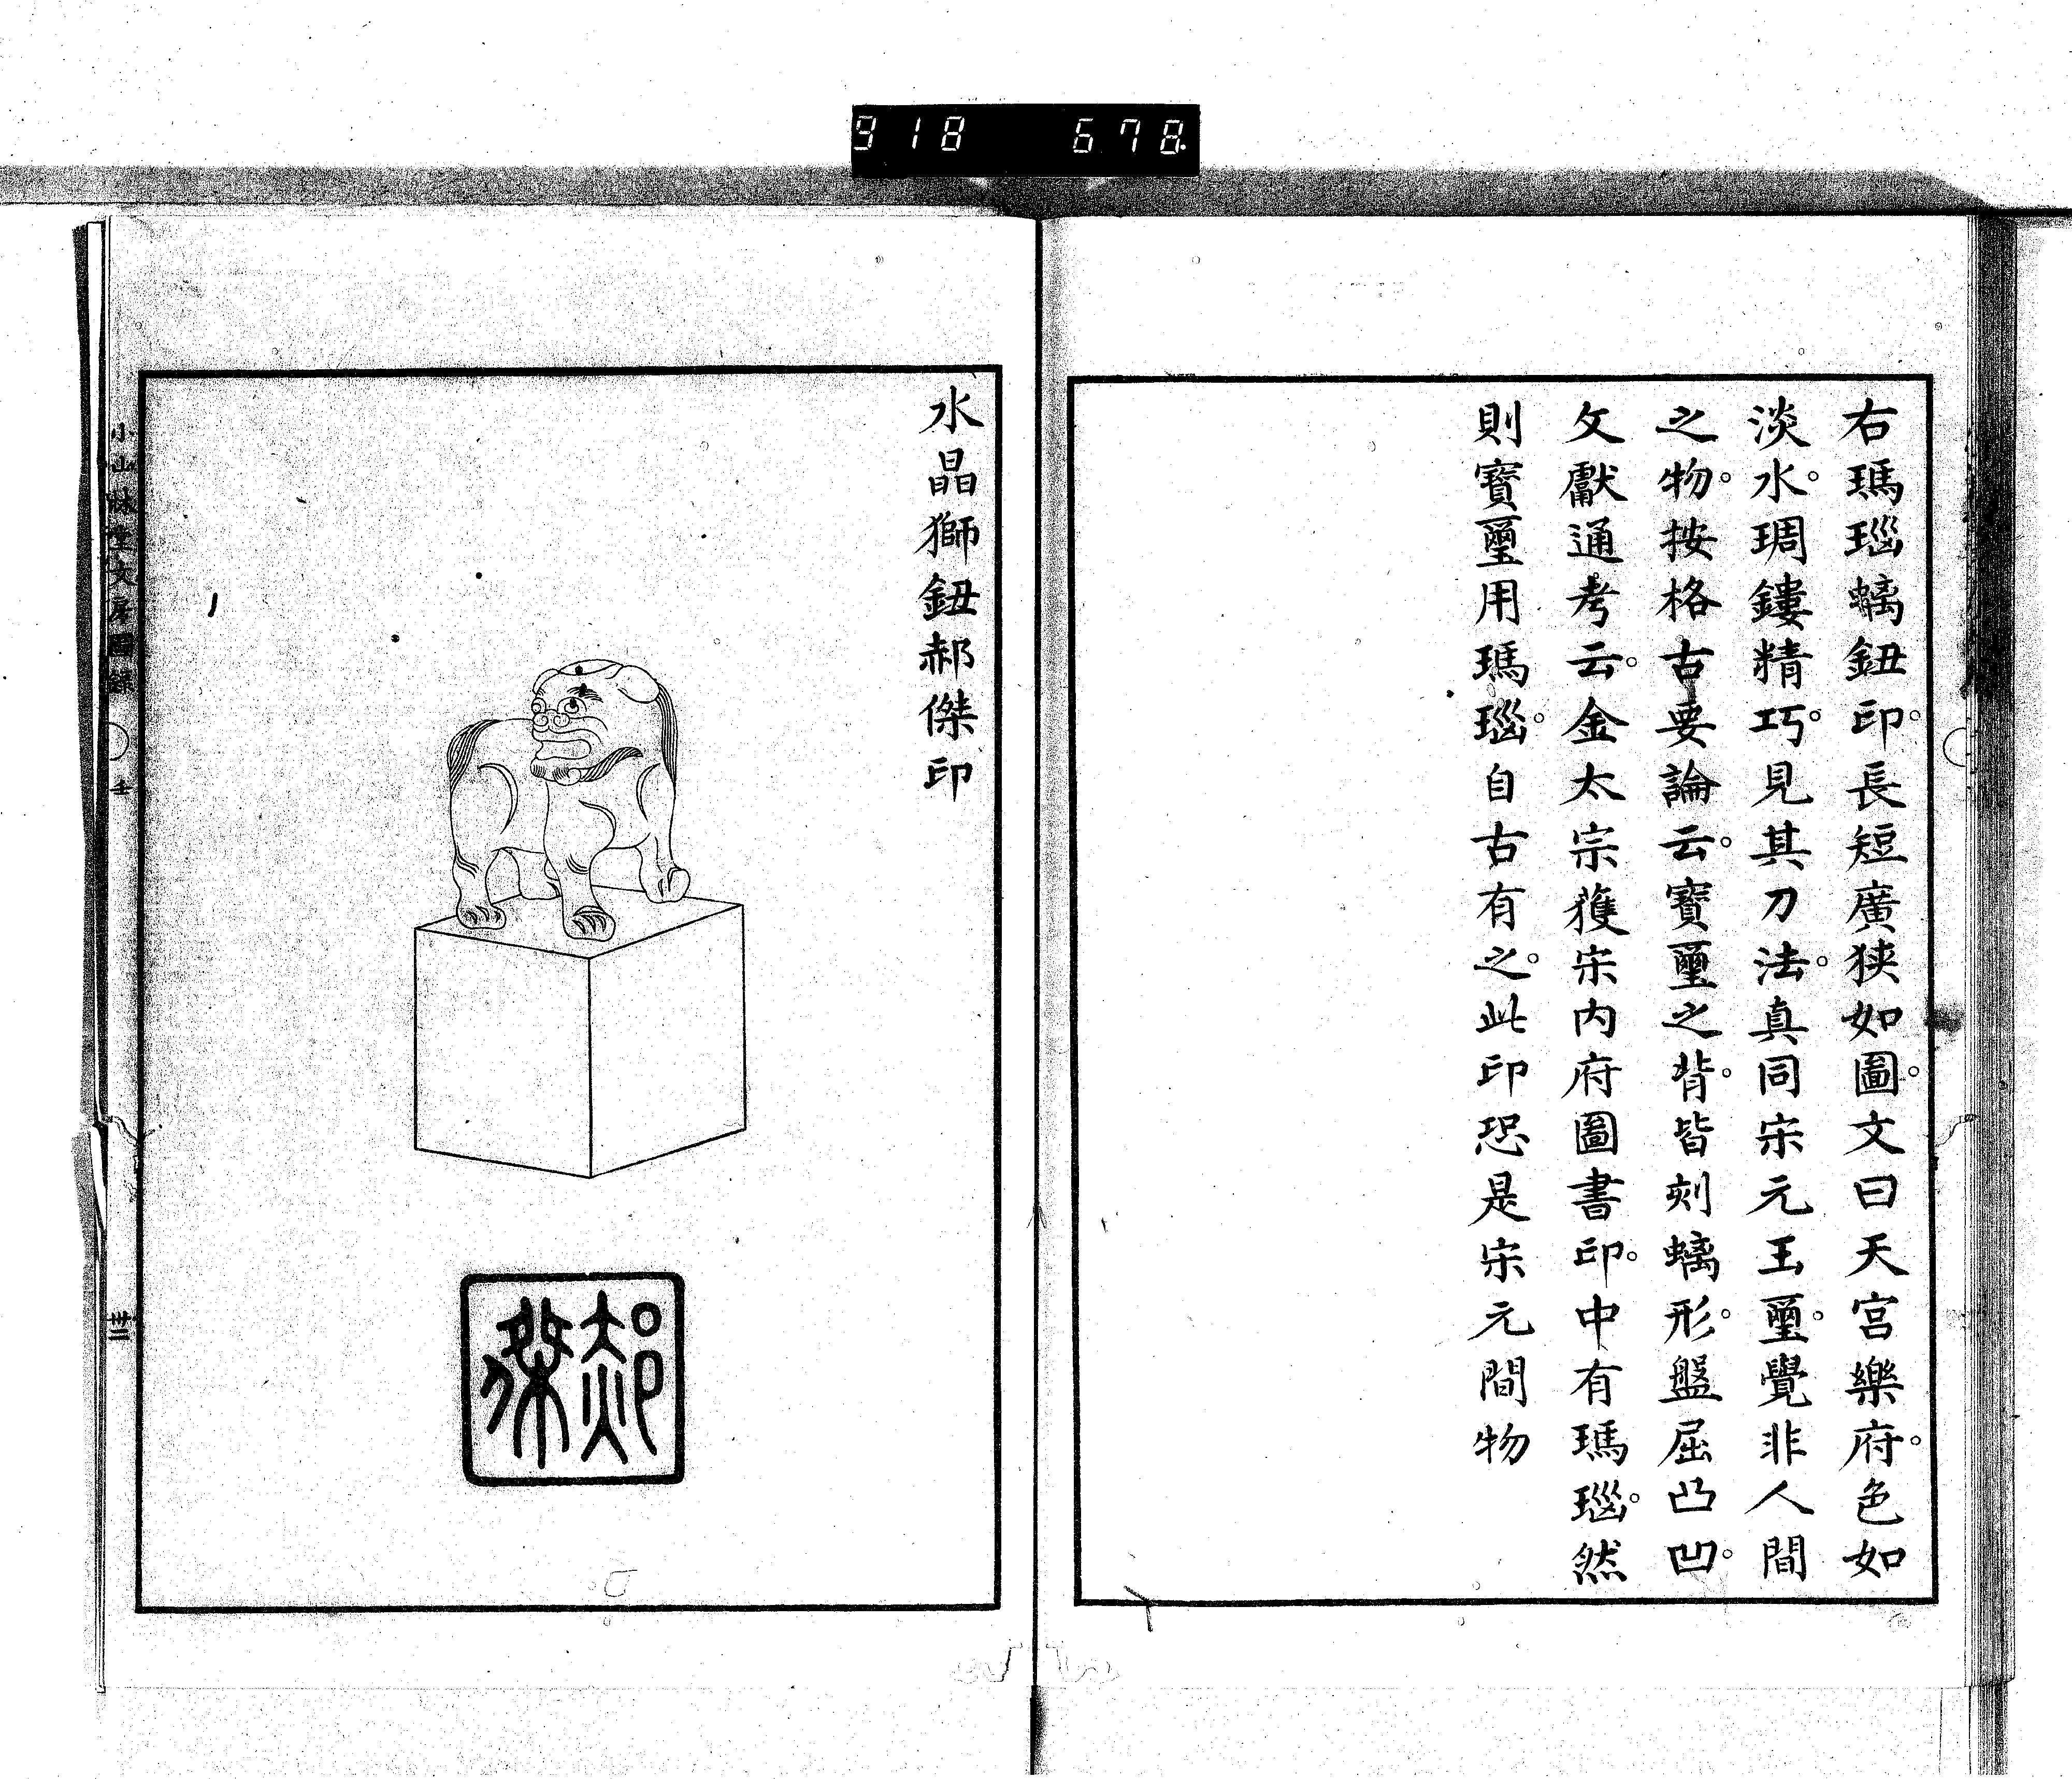 918 678.
右瑪瑙螭鈕印。長短廣狹如圖。文曰天宮樂府。色如
淡水。琱鏤精巧。見其刀法。真同宋元玉璽。覺非人間
之物。按格古要論云。寶璽之背。皆刻螭形。盤屈凸凹。
文獻通考云。金太宗獲宋內府圖書印。中有瑪瑙。然
則寶璽用瑪瑙。自古有之。此印恐是宋元間物
水晶獅鈕郝傑印
郝傑
小山林堂文房圖錄
壬
卅二